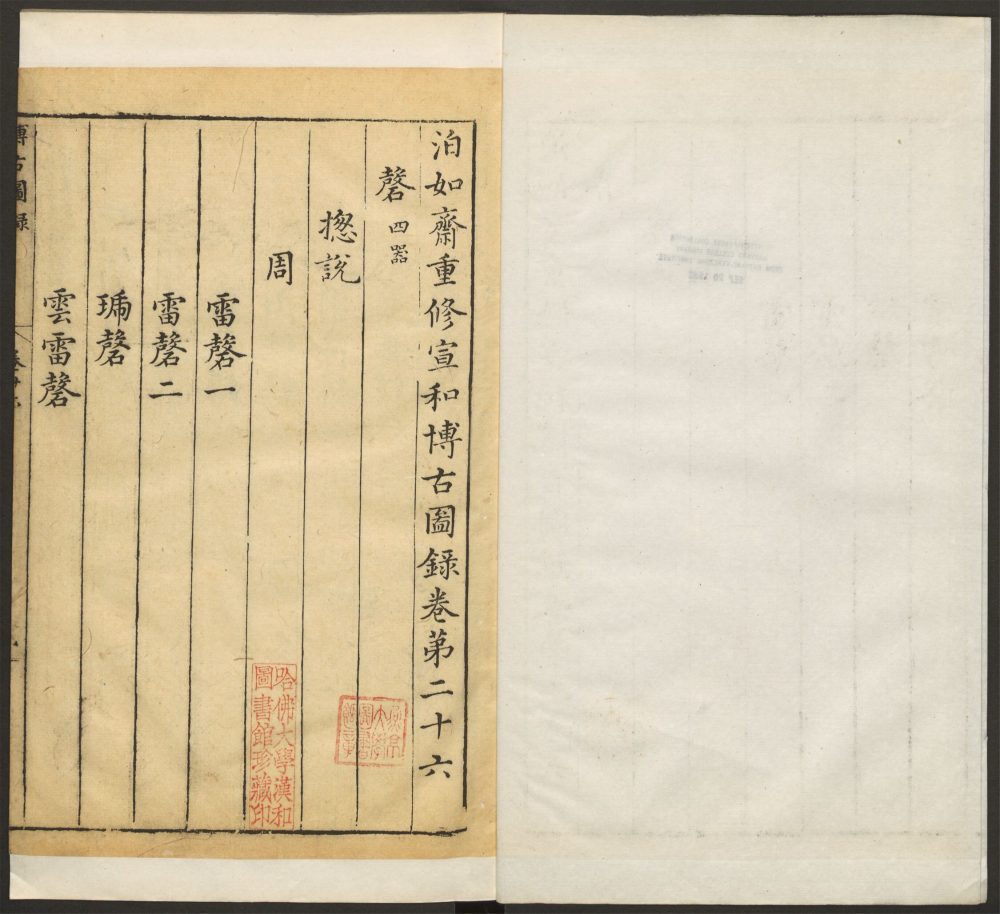 泊如齋重修宣和博古圖錄卷第二十六
磬 四器
揔說
周
雷磬一
雷磬二
瑀磬
雲雷磬
博古圖錄
哈佛大學漢和
圖書館珍藏印